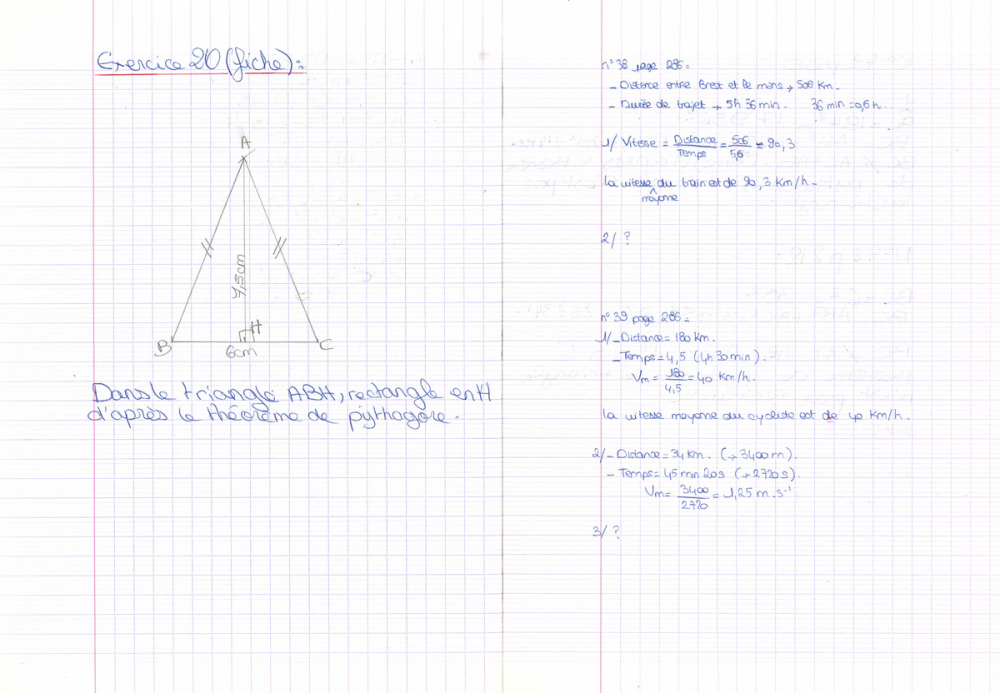 Exercice 20 (fiche):
A
7,5cm
H
B
6cm
C
Dans le triangle ABH, rectangle en H
d'après le théorème de pythagore.
n°38 page 286:
- Distance entre Brest et le mans → 506 Km.
- Durée de trajet → 5h 36 min. 36 min = 0,6 h.
1/ Vitesse = Distance/Temps = 506/5,6 ≈ 90,3
la vitesse du train est de 90,3 Km/h.
moyene
2/ ?
n°39 page 286:
1/ - Distance = 180 Km.
- Temps = 4,5 (4h 30min).
Vm = 180/4,5 = 40 Km/h.
la vitesse moyene du cycliste est de 40 Km/h.
2/ - Distance = 34 Km. (→ 3400 m).
- Temps = 45 min 20s (→ 2720 s).
Vm = 3400/2720 = 1,25 m.s⁻¹.
3/ ?